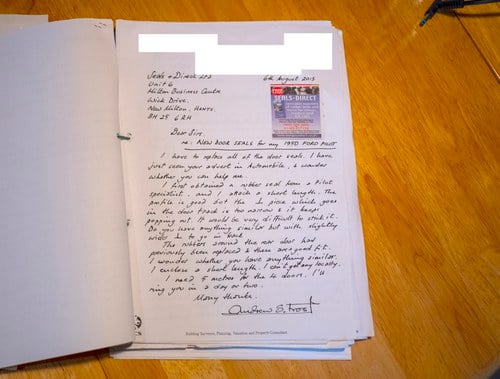 Seals + Direct Ltd
6th August 2015
Unit 6
Milton Business Centre
Wick Drive.
New Milton, Hants.
BH 25 6RH
SEALS+DIRECT
Dear Sirs
re: NEW DOOR SEALS for my 1950 FORD PILOT
I have to replace all of the door seals. I have
just seen your advert in Automobile, & wonder
whether you can help me.
I first obtained a rubber seal from a Pilot
specialist, and I attach a short length. The
profile is good but the piece which goes
in the door track is too narrow & it keeps
popping out. It would be very difficult to stick it.
Do you have anything similar but with slightly
wider to go in track
The rubbers around the rear door had
previously been replaced & these are a good fit.
I wonder whether you have anything similar.
I enclose a short length. I can't get any locally.
I need 5 metres for the 4 doors. I'll
ring you in a day or two.
Many thanks.
Andrew S. Frost
Building Surveyor, Planning, Valuation and Property Consultant